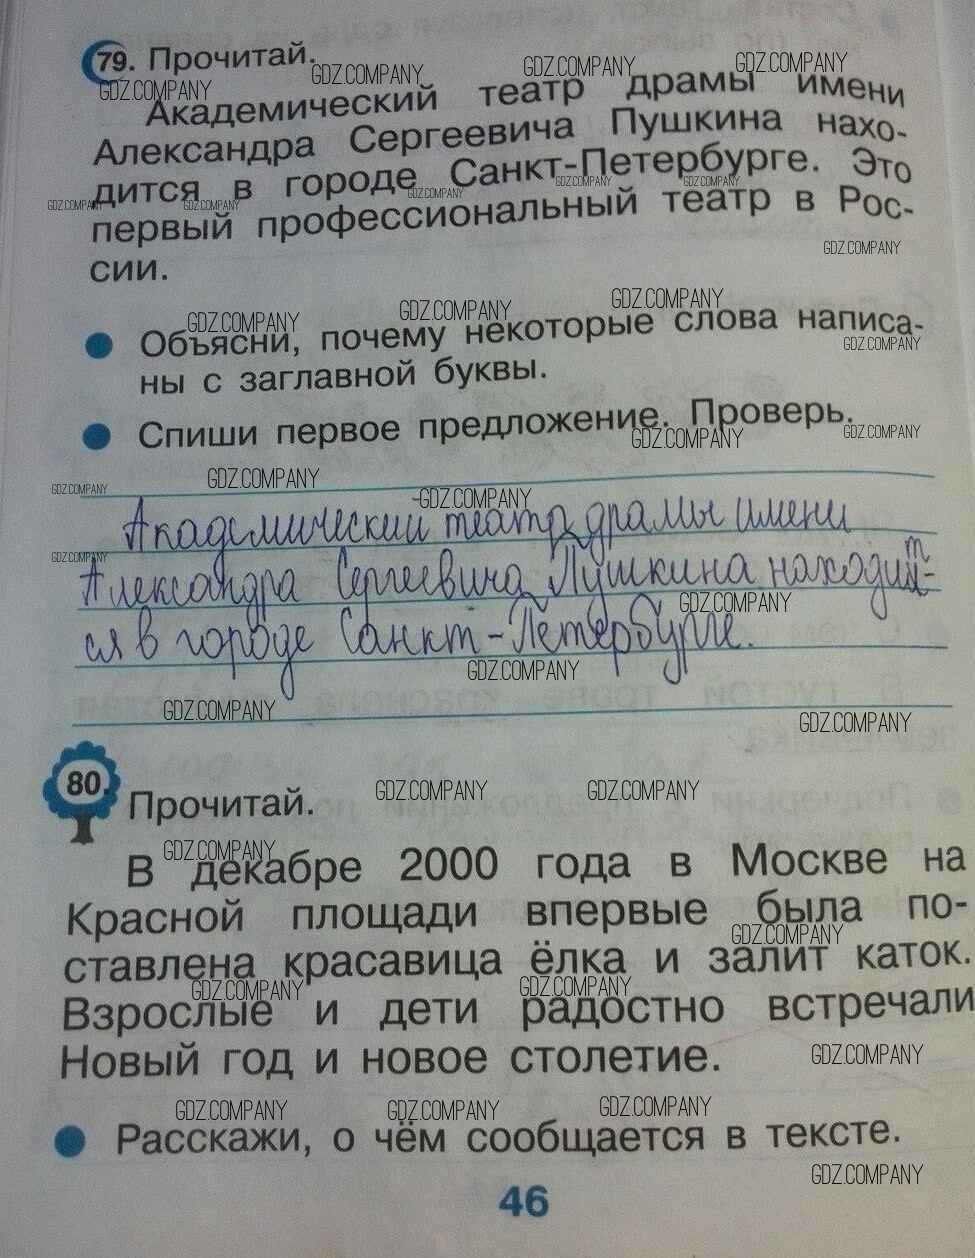 79. Прочитай.
Академический театр драмы имени
Александра Сергеевича Пушкина нахо-
дится в городе Санкт-Петербурге. Это
первый профессиональный театр в Рос-
сии.
Объясни, почему некоторые слова написа-
ны с заглавной буквы.
Спиши первое предложение. Проверь.
Академический театр драмы имени
Александра Сергеевича Пушкина находит-
ся в городе Санкт-Петербурге.
80. Прочитай.
В декабре 2000 года в Москве на
Красной площади впервые была по-
ставлена красавица ёлка и залит каток.
Взрослые и дети радостно встречали
Новый год и новое столетие.
Расскажи, о чём сообщается в тексте.
46
GDZ.COMPANY